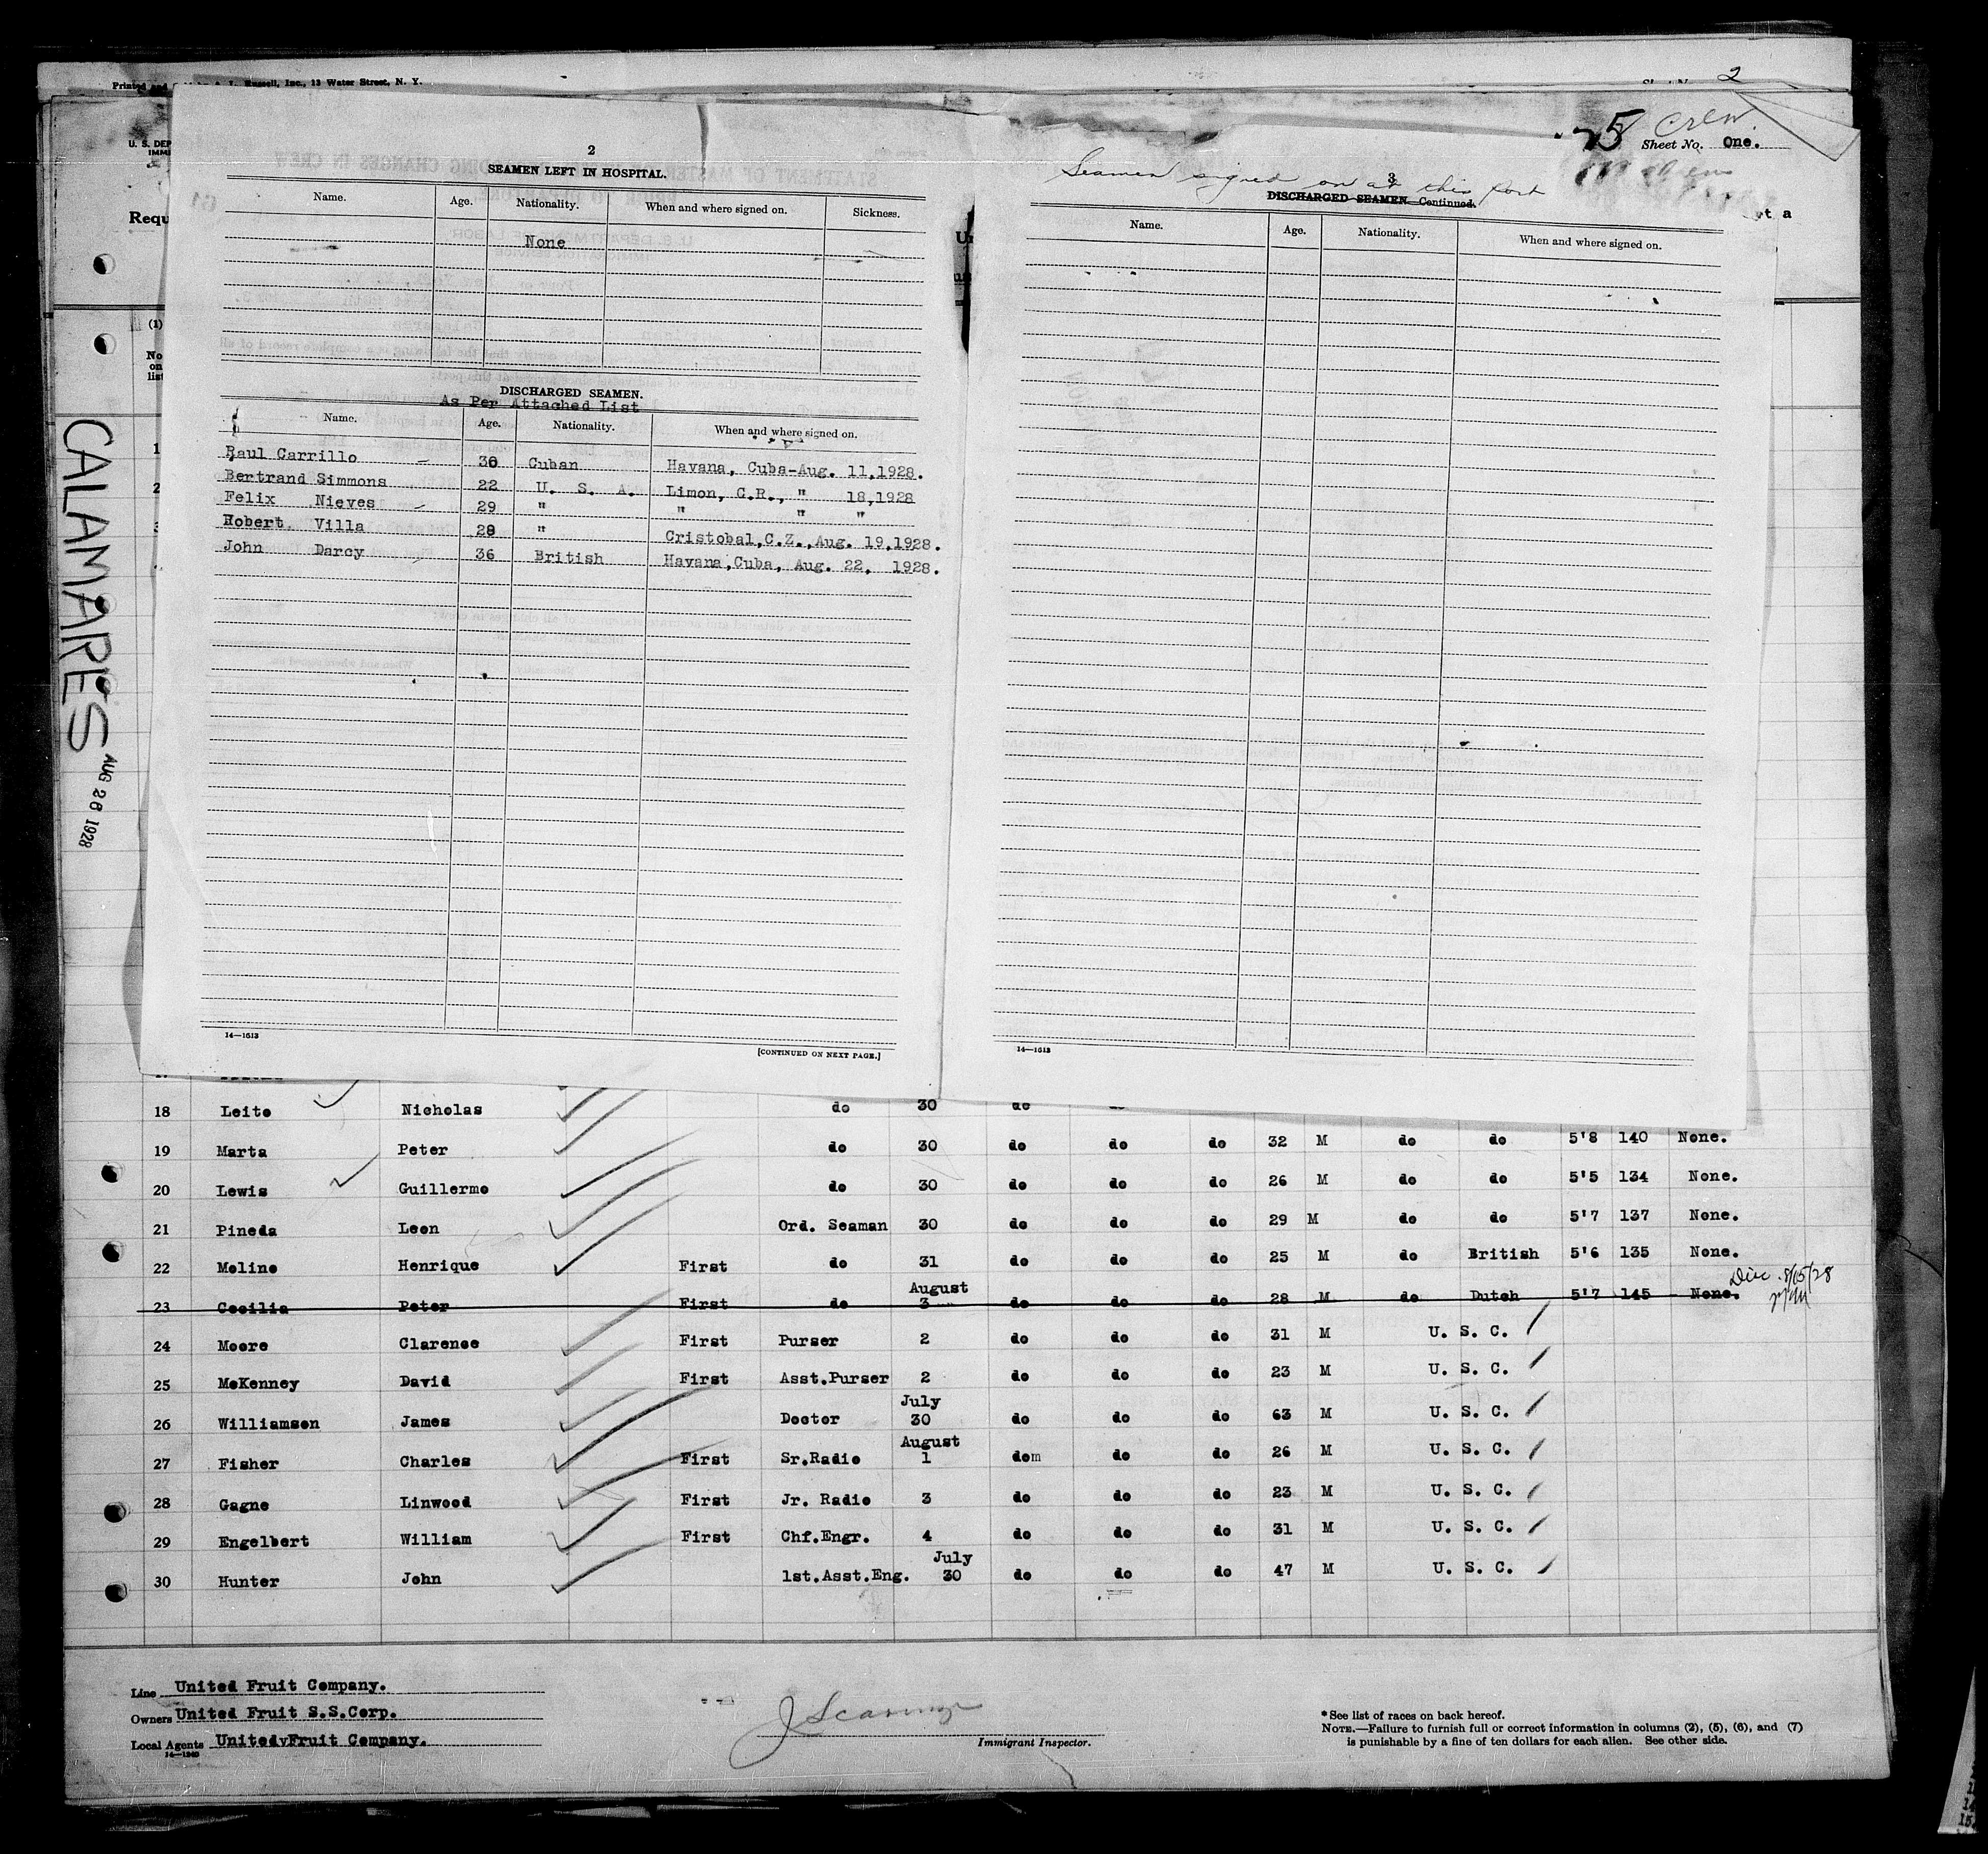 Russell, Inc., 13 Water Street, N. Y.
2
U. S. DEP
IMMI
Requ
(1)
No
on
list
1
2
3
CALAMARES
AUG 26 1928
2
SEAMEN LEFT IN HOSPITAL.
Name. Age. Nationality. When and where signed on. Sickness.
None
DISCHARGED SEAMEN.
As Per Attached List
Name. Age. Nationality. When and where signed on.
Raul Carrillo 30 Cuban Havana, Cuba-Aug. 11,1928.
Bertrand Simmons 22 U. S. A. Limon, C.R., " 18,1928
Felix Nieves 29 " " " "
Robert Villa 28 " Cristobal,C.Z.,Aug. 19,1928.
John Darcy 36 British Havana,Cuba, Aug. 22, 1928.
14—1613
[CONTINUED ON NEXT PAGE.]
75 Crew
Sheet No. One.
Seamen signed on at this port
3
DISCHARGED SEAMEN—Continued.
Name. Age. Nationality. When and where signed on.
14—1613
rt a
18 Leite Nicholas do 30 do do
19 Marta Peter do 30 do do do 32 M do do 5'8 140 None.
20 Lewis Guillermo do 30 do do do 26 M do do 5'5 134 None.
21 Pineda Leon Ord. Seaman 30 do do do 29 M do do 5'7 137 None.
22 Moline Henrique First do 31 do do do 25 M do British 5'6 135 None.
August
23 Cecilia Peter First do 3 do do do 28 M do Dutch 5'7 145 None. Dis. 8/15/28
24 Moore Clarence First Purser 2 do do do 31 M U. S. C.
25 McKenney David First Asst.Purser 2 do do do 23 M U. S. C.
July
26 Williamson James Doctor 30 do do do 63 M U. S. C.
August
27 Fisher Charles First Sr.Radio 1 dom do do 26 M U. S. C.
28 Gagne Linwood First Jr. Radio 3 do do do 23 M U. S. C.
29 Engelbert William First Chf.Engr. 4 do do do 31 M U. S. C.
July
30 Hunter John 1st.Asst.Eng. 30 do do do 47 M U. S. C.
Line United Fruit Company.
Owners United Fruit S.S.Corp.
Local Agents UnitedvFruit Company.
Immigrant Inspector.
*See list of races on back hereof.
NOTE.—Failure to furnish full or correct information in columns (2), (5), (6), and (7)
is punishable by a fine of ten dollars for each alien. See other side.